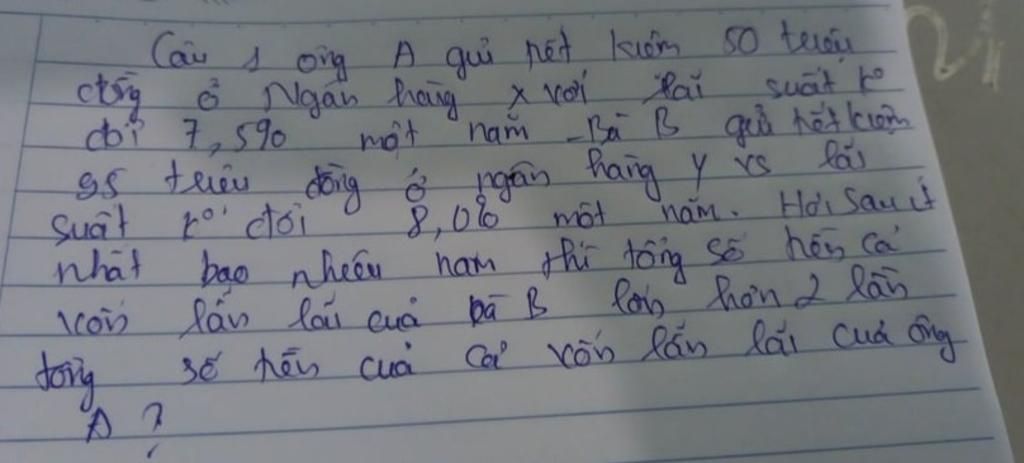 Câu 1 ông A gửi tiết kiệm 50 triệu
đồng ở Ngân hàng X với lãi suất k°
đổi 7,5% một năm - Bà B gửi tiết kiệm
95 triệu đồng ở ngân hàng Y vs lãi
suất k° đổi 8,0% một năm. Hỏi sau ít
nhất bao nhiêu năm thì tổng số tiền cả
vốn lẫn lãi của bà B lớn hơn 2 lần
tổng số tiền của cả vốn lẫn lãi của ông
A ?